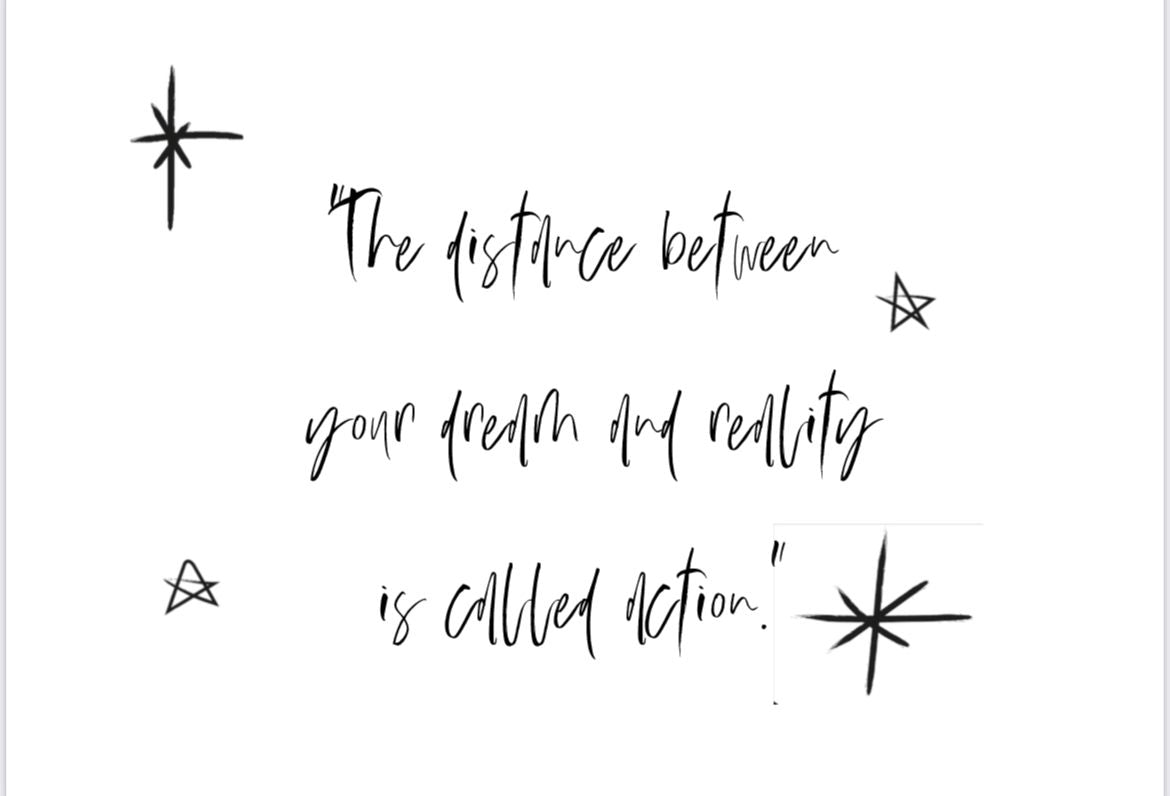 "The distance between
your dream and reality
is called action."